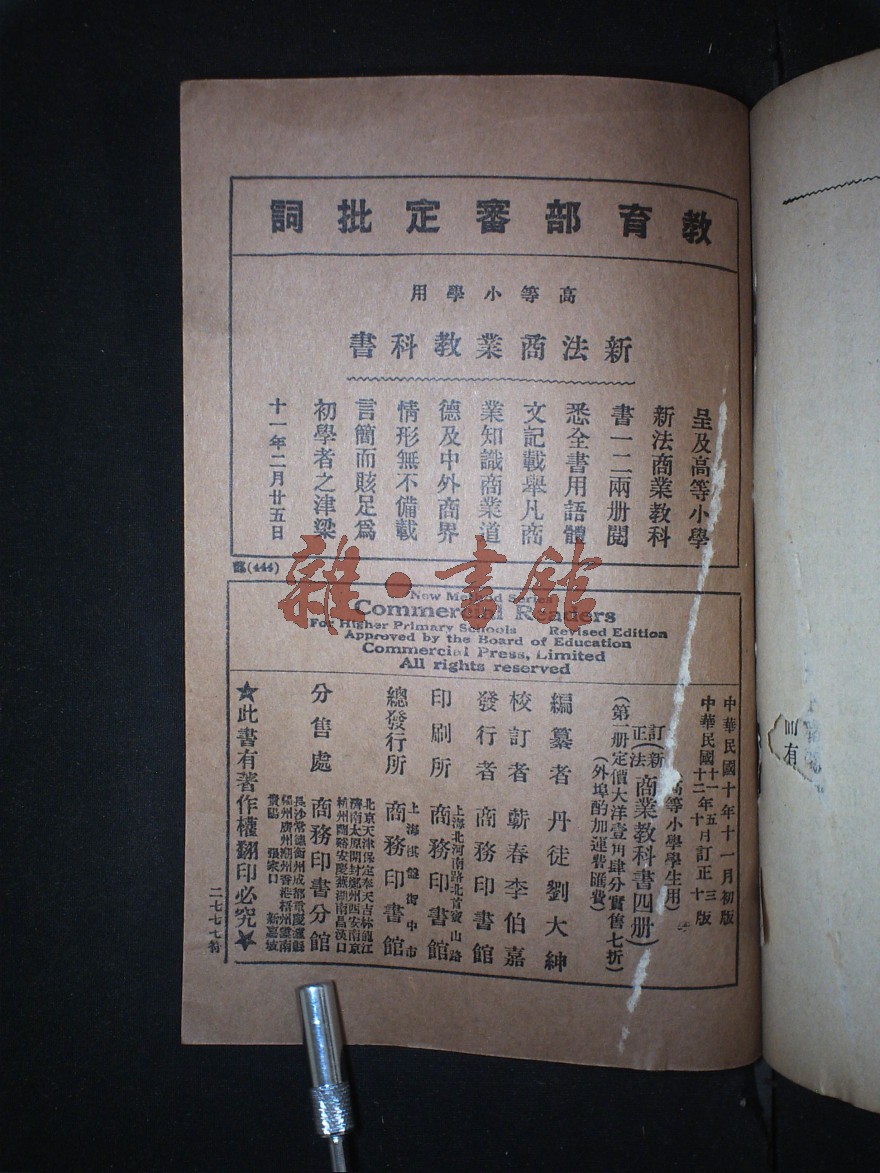 教育部審定批詞
高等小學用
新法商業教科書
呈及高等小學
新法商業教科
書一二兩册閱
悉全書用語體
文記載舉凡商
業知識商業道
德及中外商界
情形無不備載
言簡而賅足爲
初學者之津梁
十一年二月廿五日
(444)
雜·書館
New Method Series
Commercial Readers
For Higher Primary Schools Revised Edition
Approved by the Board of Education
Commercial Press, Limited
All rights reserved
中華民國十年十一月初版
中華民國十一年五月訂正十版
十二年十三版
高等小學學生用
訂正新法商業教科書四册
(第一册定價大洋壹角肆分實售七折)
(外埠酌加運費匯費)
編纂者 丹徒劉大紳
校訂者 蘄春李伯嘉
發行者 商務印書館
印刷所 上海北河南路北首寶山路 商務印書館
總發行所 上海棋盤街中市 商務印書館
分售處 北京天津保定奉天吉林龍江
濟南太原開封鄭州西安南京
杭州蘭谿安慶蕪湖南昌漢口
商務印書分館
長沙常德衡州成都重慶瀘縣
福州廣州潮州香港梧州雲南
貴陽 張家口 新嘉坡
★此書有著作權翻印必究★
二七七七
有